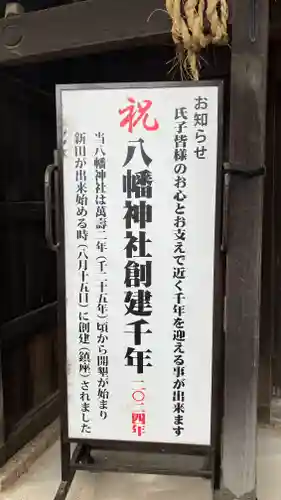 お知らせ
氏子皆様のお心とお支えで近く千年を迎える事が出来ます
祝 八幡神社創建千年 二〇二四年
当八幡神社は萬壽二年(千二十五年)頃から開墾が始まり
新田が出来始める時(八月十五日)に創建(鎮座)されました